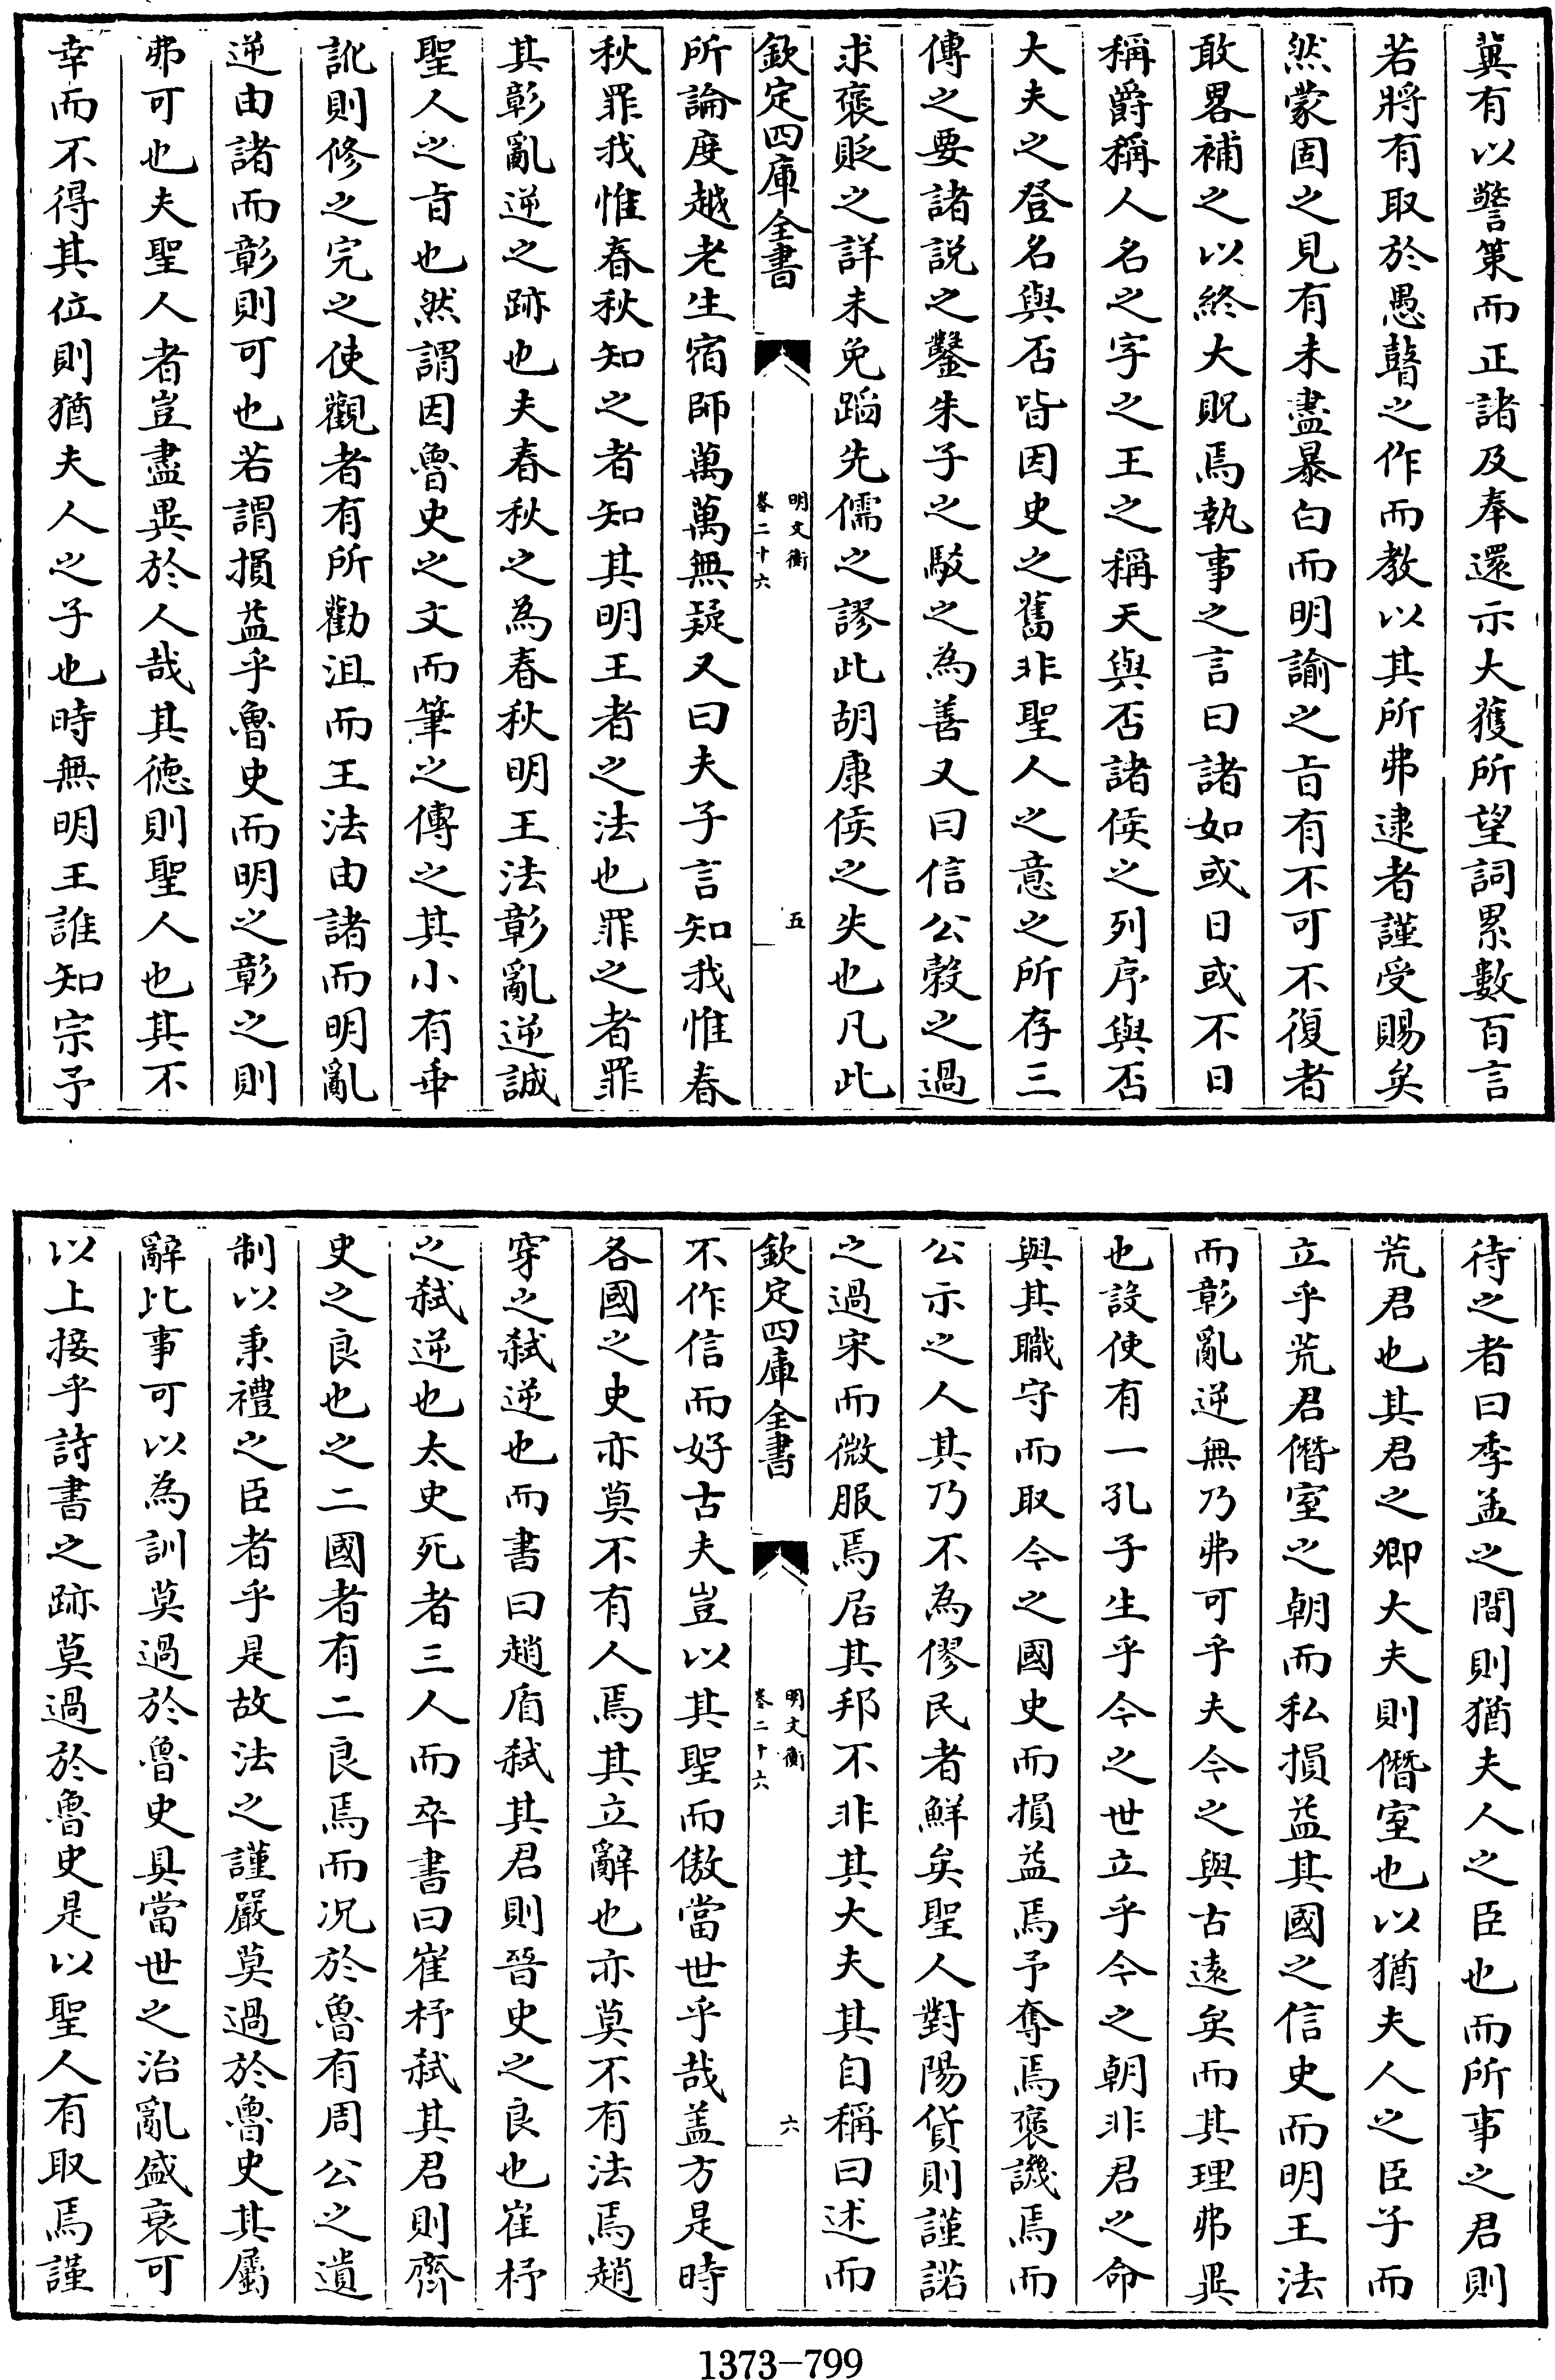 冀有以警策而正諸及奉還示大獲所望詞累數百言
若將有取於愚瞽之作而教以其所弗逮者謹受賜矣
然蒙固之見有未盡暴白而明諭之㫖有不可不復者
敢畧補之以終大貺焉執事之言曰諸如或日或不日
稱爵稱人名之字之王之稱天與否諸侯之列序與否
大夫之登名與否皆因史之舊非聖人之意之所存三
傳之要諸説之鑿朱子之駮之為善又曰信公穀之過
求褒貶之詳未免蹈先儒之謬此胡康侯之失也凡此
欽定四庫全書
明文衡
卷二十六
五
所論度越老生宿師萬萬無疑又曰夫子言知我惟春
秋罪我惟春秋知之者知其明王者之法也罪之者罪
其彰亂逆之跡也夫春秋之為春秋明王法彰亂逆誠
聖人之㫖也然謂因魯史之文而筆之傳之其小有乖
訛則修之完之使觀者有所勸沮而王法由諸而明亂
逆由諸而彰則可也若謂損益乎魯史而明之彰之則
弗可也夫聖人者豈盡異於人哉其徳則聖人也其不
幸而不得其位則猶夫人之子也時無明王誰知宗予
待之者曰季孟之間則猶夫人之臣也而所事之君則
荒君也其君之卿大夫則僭室也以猶夫人之臣子而
立乎荒君僭室之朝而私損益其國之信史而明王法
而彰亂逆無乃弗可乎夫今之與古遠矣而其理弗異
也設使有一孔子生乎今之世立乎今之朝非君之命
與其職守而取今之國史而損益焉予奪焉褒譏焉而
公示之人其乃不為僇民者鮮矣聖人對陽貨則謹諾
之過宋而微服焉居其邦不非其大夫其自稱曰述而
欽定四庫全書
明文衡
卷二十六
六
不作信而好古夫豈以其聖而傲當世乎哉盖方是時
各國之史亦莫不有人焉其立辭也亦莫不有法焉趙
穿之弑逆也而書曰趙盾弑其君則晉史之良也崔杼
之弑逆也太史死者三人而卒書曰崔杼弑其君則齊
史之良也之二國者有二良焉而况於魯有周公之遺
制以秉禮之臣者乎是故法之謹嚴莫過於魯史其屬
辭比事可以為訓莫過於魯史具當世之治亂盛衰可
以上接乎詩書之跡莫過於魯史是以聖人有取焉謹
1373—799